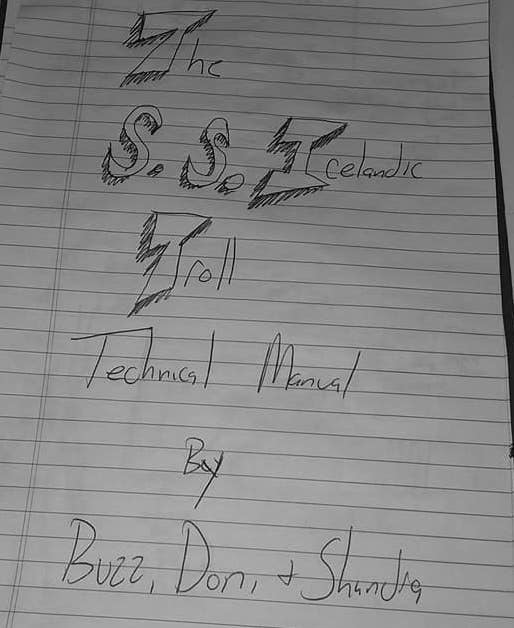 The
S. S. Icelandic
Troll
Technical Manual
By
Buzz, Don, + Shandra